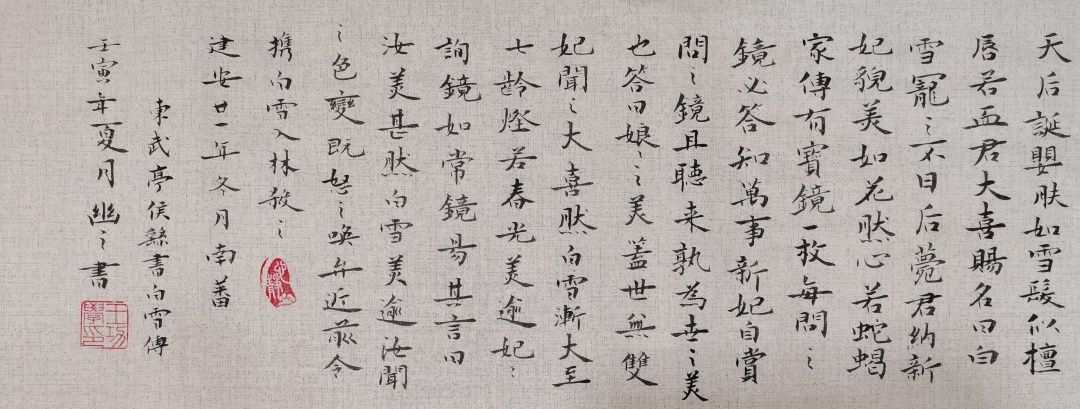 天后誕嬰肤如雪髮似檀
唇若血君大喜賜名曰白
雪寵之不日后薨君納新
妃貌美如花然心若蛇蝎
家傳有寶鏡一枚每問之
鏡必答知萬事新妃自賞
問之鏡且聽来孰為世之美
也答曰娘〻之美蓋世無雙
妃聞之大喜然白雪漸大至
七龄燈若春光美逾妃〻
詢鏡如常鏡易其言曰
汝美甚然白雪美逾汝聞
之色變既怒之喚弁近前令
携白雪入林殺之
建安廿一年冬月南蕃
東武亭侯繇書白雪傳
壬寅年夏月幽之書